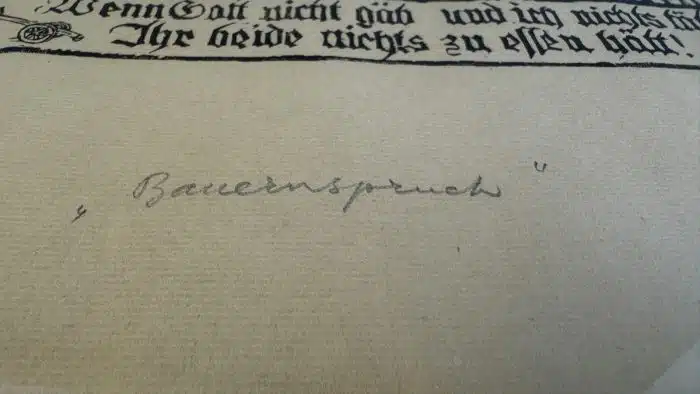 Wenn Gott nicht gäb und ich nichts tät
Ihr beide nichts zu essen hätt!
„Bauernspruch“